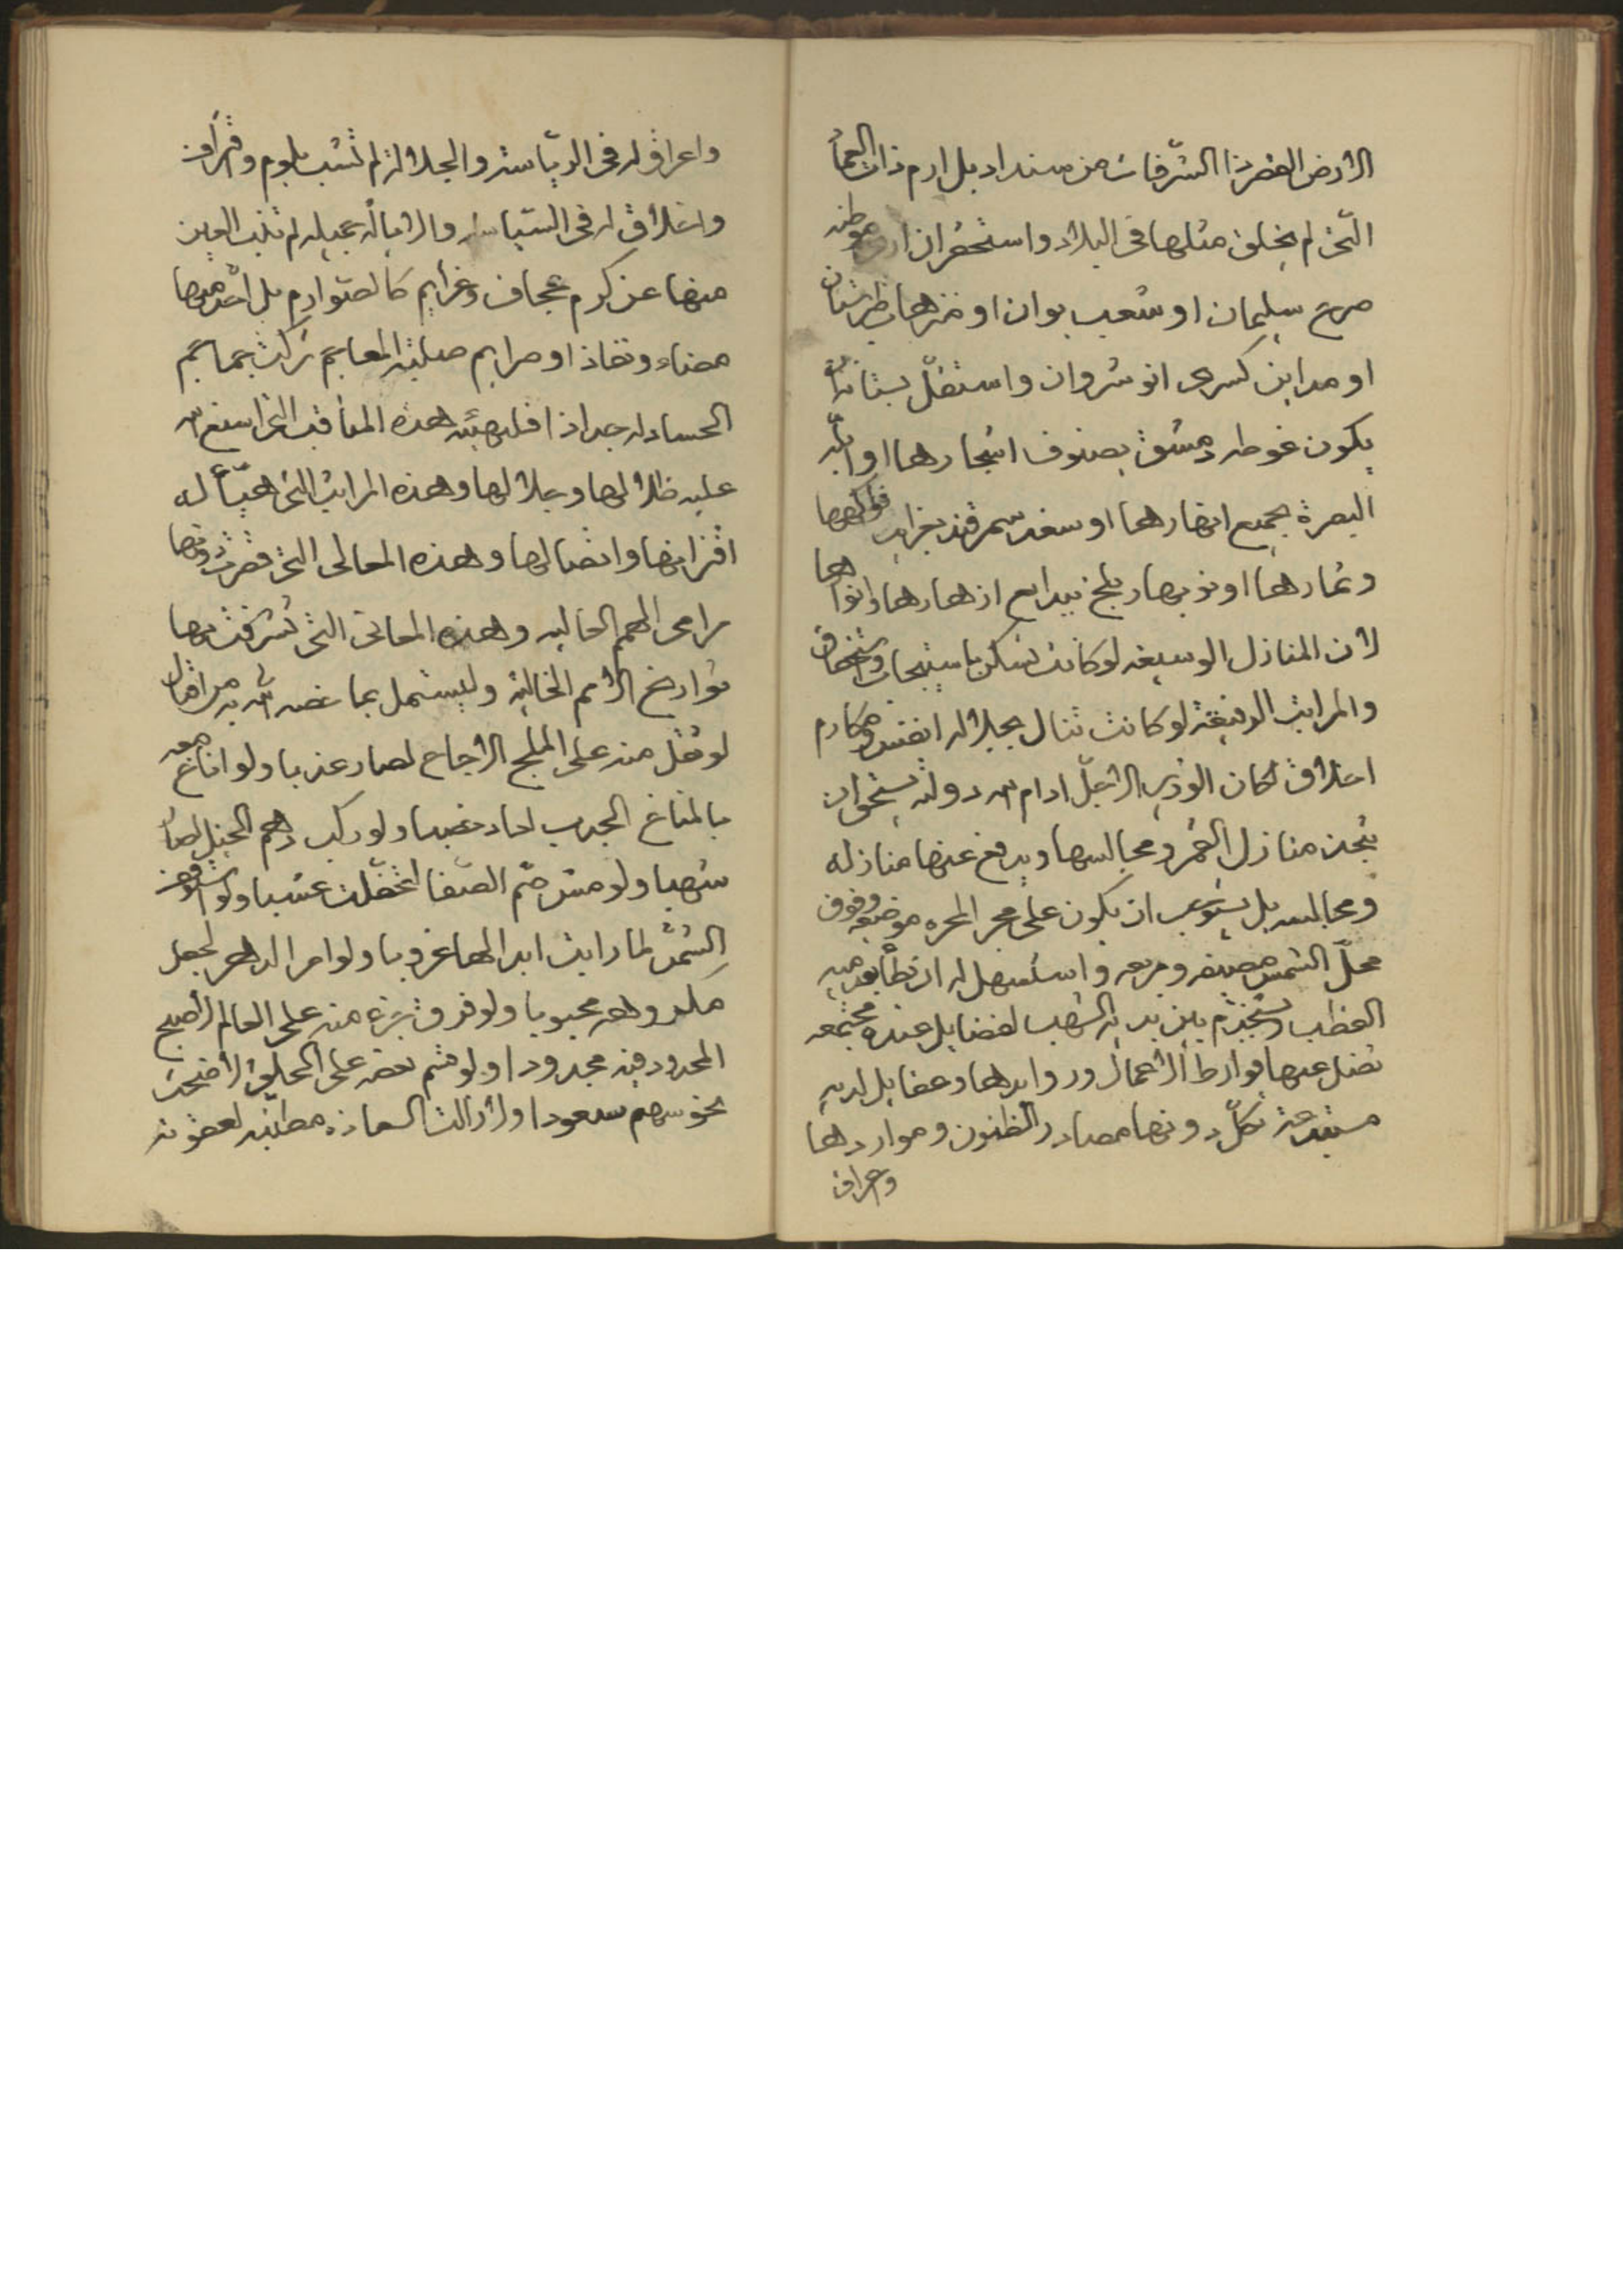 الارض القصر ذا الشرفات من سنداد بل ارم ذات العماد
التى لم يخلق مثلها فى البلاد واستحقر ان موطنه
صرح سليمان او شعب بوان او منزهات طبرستان
او مداين كسرى انوشروان واستقل بستانا
يكون غوطه دمشق بصنوف اشجارها او ابلة
البصرة بجميع انهارها او سغد سمرقند بغرايب فواكهها
وثمارها او نوبهار بلخ ببدايع ازهارها وانوارها
لان المنازل الوسيعه لو كانت تسكن باستيجاب واستحقاق
والمراتب الرفيعة لو كانت تنال بجلاله انفس ومكارم
اخلاق لكان الوزير الاجل ادام الله دولته يستحق ان
يتخذ منازل القمر ومجالسها ويرفع عنها منازله
ومجالسه بل يستوجب ان يكون على مجر المجره موضعه وفوق
محل الشمس مصيفه ومربعه واستسهل له ان تطا بقدميه
القطب ويستخدم بين يديه الشهب لفضايل عنده مجتمعه
تضل عنها فوارط الاعمال وروايدها وعقايل لديه
مستبدعة تكل دونها مصادر الظنون ومواردها
واعراق
واعراق له فى الرياسة والجلالة لم تشب بلوم وقراف
واخلاق له فى السياسة والايالة جميله لم تنب العين
منها عن كرم عجاف وعزايم كالصوارم بل احد منها
مضاء ونفاذا وصرايم صليبة المعاجم تركت جماجم
الحساد له جدادا فليهنه هذه المناقب التى اسبغ الله
عليه ظلالها وجلالها وهذه المراتب التى هيأ له
اقترانها واتصالها وهذه المعالى التى قصرت دونها
مرامى الهمم العاليه وهذه المعانى التى تشرفت بها
تواريخ الامم الخالية وليستمل بما خصه الله به من اقبال
لو تفل منه على الملح الاجاج لصار عذبا ولو اناخ معه
بالمناخ الجديب لعاد خصيبا ولو ركب دهم الخيل لصارت
شهبا ولو مس صم الصفا لتحفلت عشبا ولو استوقف
الشمس لما رايت ابدا لها غروبا ولو امر الدهر لجعل
مكروهه محبوبا ولو فرق نزة منه على العالم لاصبح
المحدود فيه مجدودا ولو قسم بعضه على الخلق لاضحت
نحوسهم سعودا ولا زالت السعادة مطنبه لعقوته